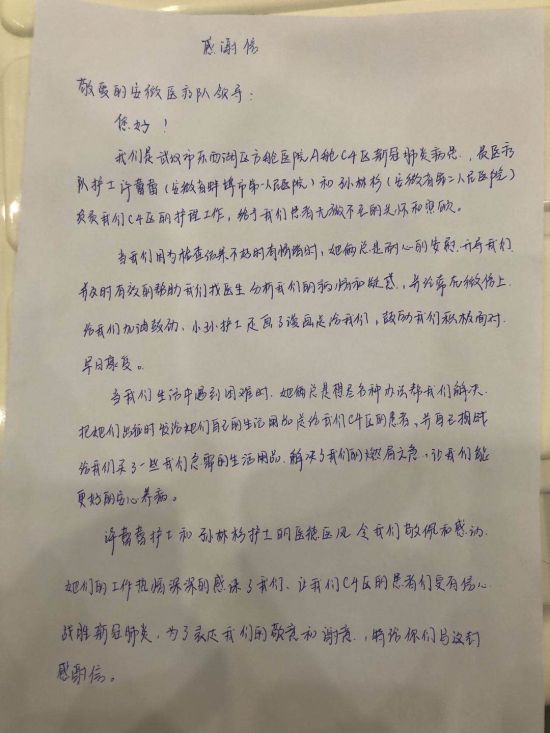 感谢信
敬爱的安徽医疗队领导：
您好！
我们是武汉市东西湖区方舱医院A舱C4区新冠肺炎病患，贵医疗
队护士许蕾蕾（安徽省蚌埠市第一人民医院）和孙林杉（安徽省第二人民医院）
负责我们C4区的护理工作，给予我们患者无微不至的关怀和照顾。
当我们因为检查结果不好时有情绪时，她俩总是耐心的安慰开导我们
并及时有效的帮助我们找医生分析我们的病情和疑惑，并经常在微信上
给我们加油鼓劲、小孙护士还画了漫画送给我们，鼓励我们积极面对.
早日康复。
当我们生活中遇到困难时.她俩总是想尽各种办法帮我们解决.
把她们出征时发给她们自己的生活用品送给我们C4区的患者，并自己掏钱
给我们买了一些我们急需的生活用品.解决了我们的燃眉之急，让我们能
更好的安心养病。
许蕾蕾护士和孙林杉护士的医德医风令我们敬佩和感动.
她们的工作热情深深的感染了我们、让我们C4区的患者们更有信心
战胜新冠肺炎，为了表达我们的敬意和谢意，特给你们写这封
感谢信。